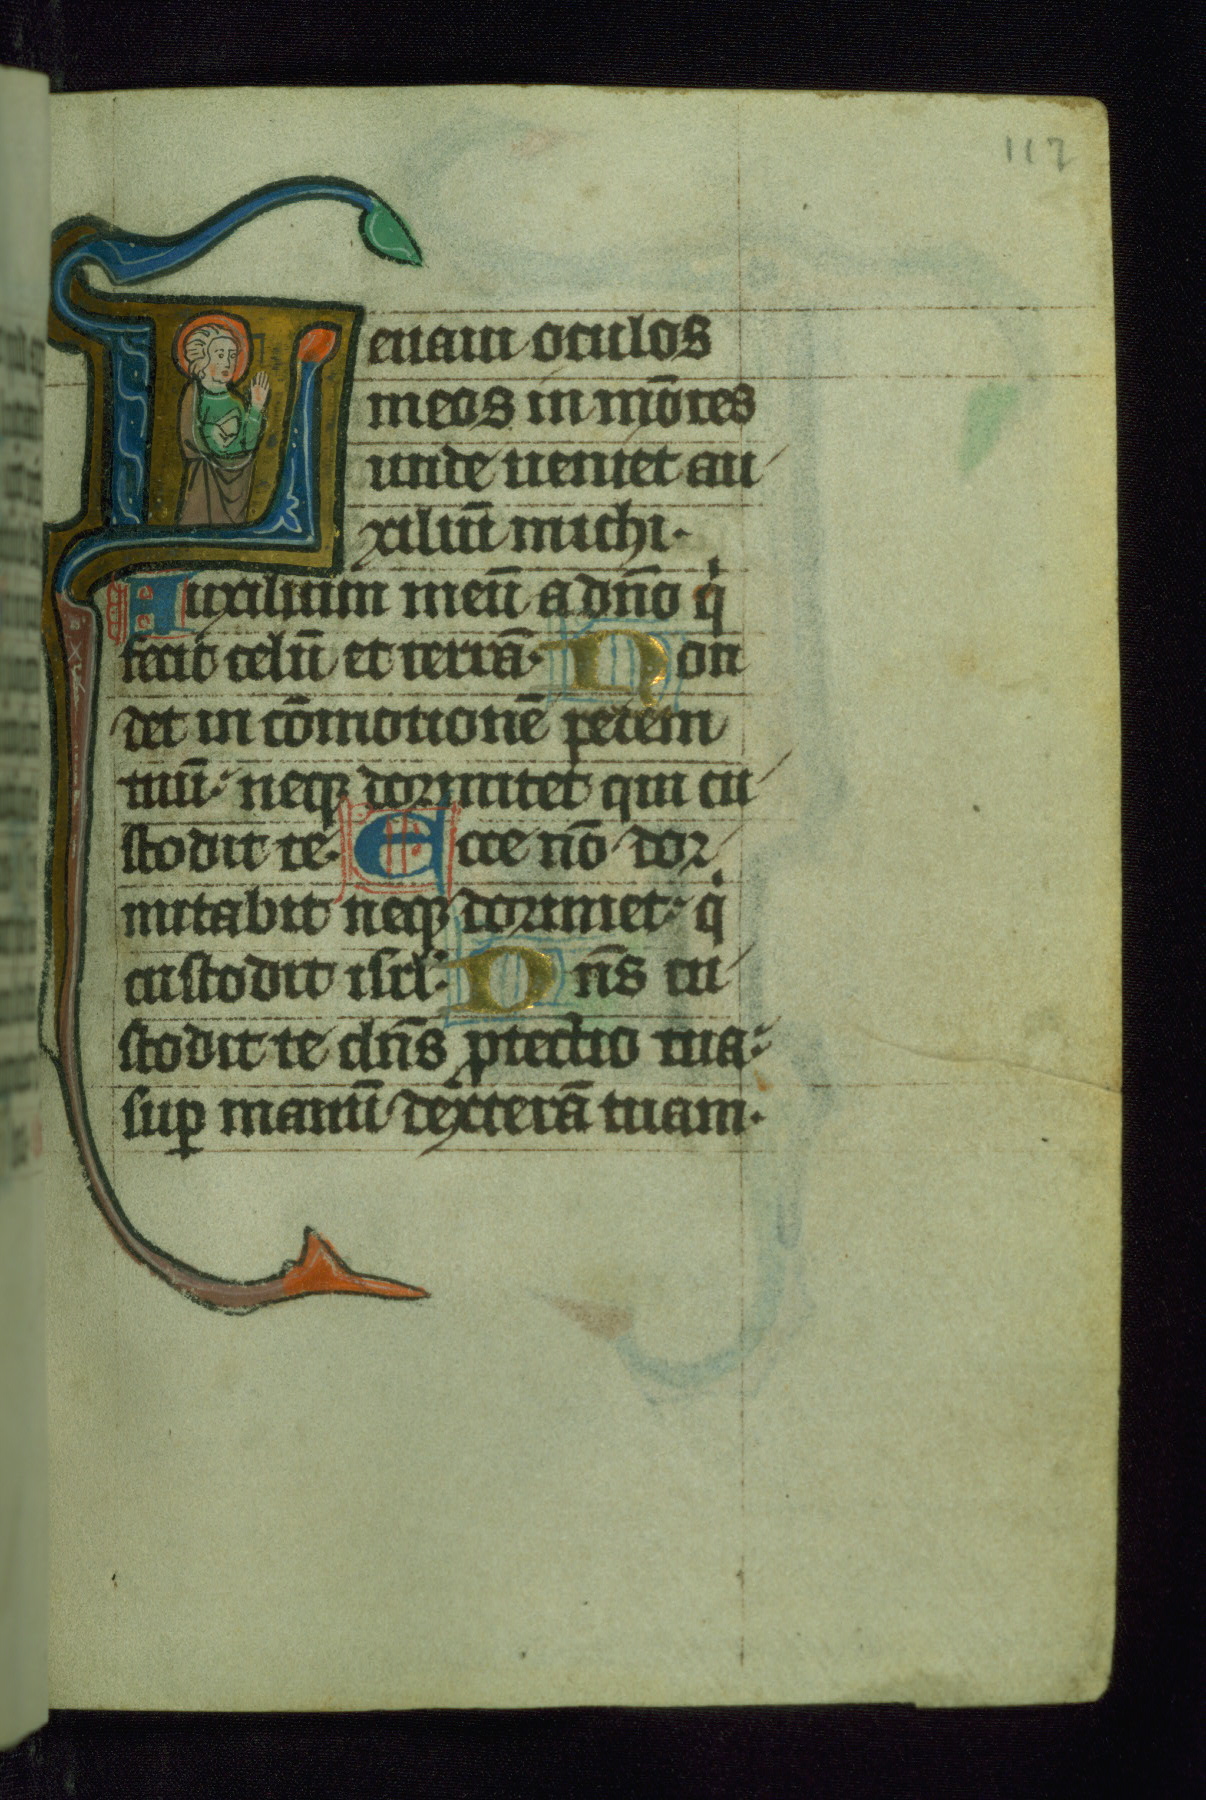 117
Leuaui oculos
meos in mo̅tes
unde ueniet au
xiliu̅ michi.
Auxilium meu̅ a dn̅o qi
fecit celu̅ et terra̅. Non
det in co̅motione̅ pedem
tuu̅: neqꝫ dormitet qui cu
stodit te. Ecce no̅ dor
mitabit neqꝫ dormiet: qi
custodit isrl̅. Dn̅s cu
stodit te dn̅s ꝓtectio tua:
suꝑ manu̅ dextera̅ tuam.